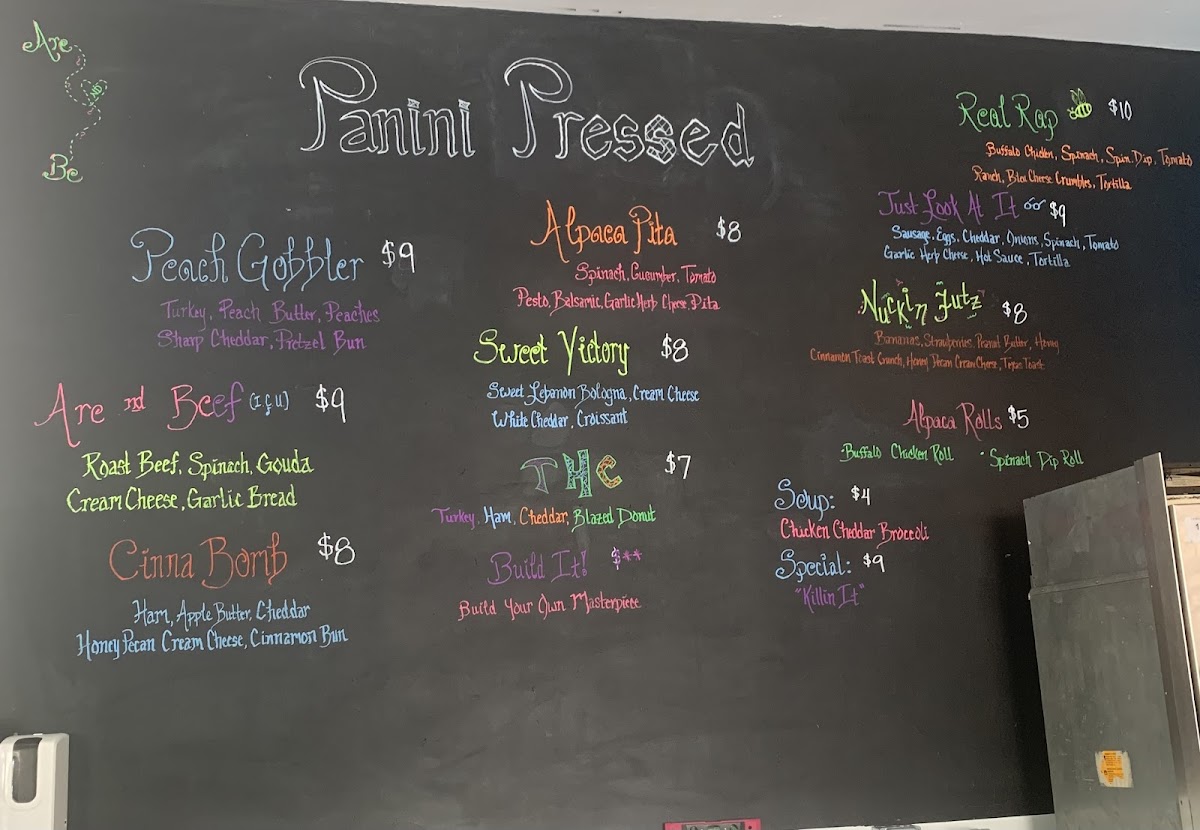 Are
nd
Be
Panini Pressed
Peach Gobbler $9
Turkey, Peach Butter, Peaches
Sharp Cheddar, Pretzel Bun
Are nd Beef (I.G.U) $9
Roast Beef, Spinach, Gouda
Cream Cheese, Garlic Bread
Cinna Bomb $8
Ham, Apple Butter, Cheddar
Honey Pecan Cream Cheese, Cinnamon Bun
Alpaca Pita $8
Spinach, Cucumber, Tomato
Pesto, Balsamic, Garlic Herb Cheese, Pita
Sweet Victory $8
Sweet Lebanon Bologna, Cream Cheese
White Cheddar, Croissant
THC $7
Turkey, Ham, Cheddar, Blazed Donut
Build It! $**
Build Your Own Masterpiece
Real Rap $10
Buffalo Chicken, Spinach, Spin. Dip, Tomato
Ranch, Bleu Cheese Crumbles, Tortilla
Just Look At It $9
Sausage, Eggs, Cheddar, Onions, Spinach, Tomato
Garlic Herb Cheese, Hot Sauce, Tortilla
Nuckin Futz $8
Bananas, Strawberries, Peanut Butter, Honey
Cinnamon Toast Crunch, Honey Pecan Cream Cheese, Texas Toast
Alpaca Rolls $5
·Buffalo Chicken Roll ·Spinach Dip Roll
Soup: $4
Chicken Cheddar Broccoli
Special: $9
"Killin It"